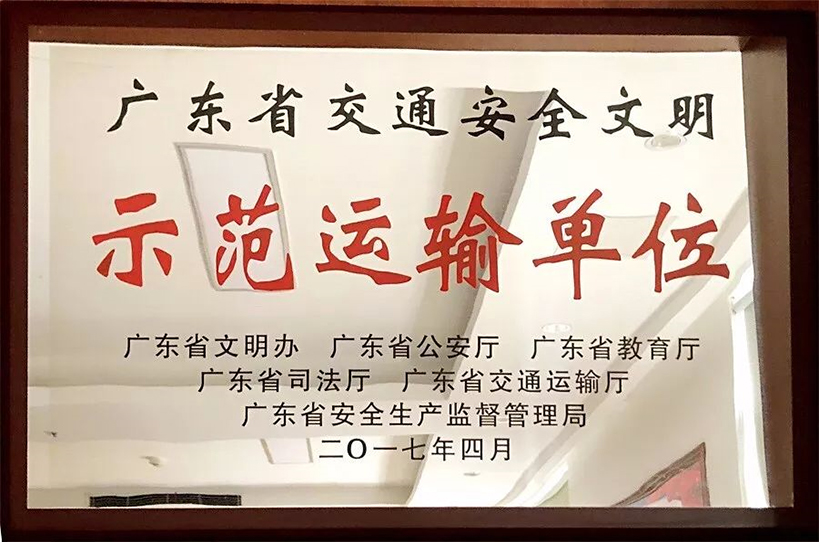 广东省交通安全文明
示范运输单位
广东省文明办 广东省公安厅 广东省教育厅
广东省司法厅 广东省交通运输厅
广东省安全生产监督管理局
二〇一七年四月